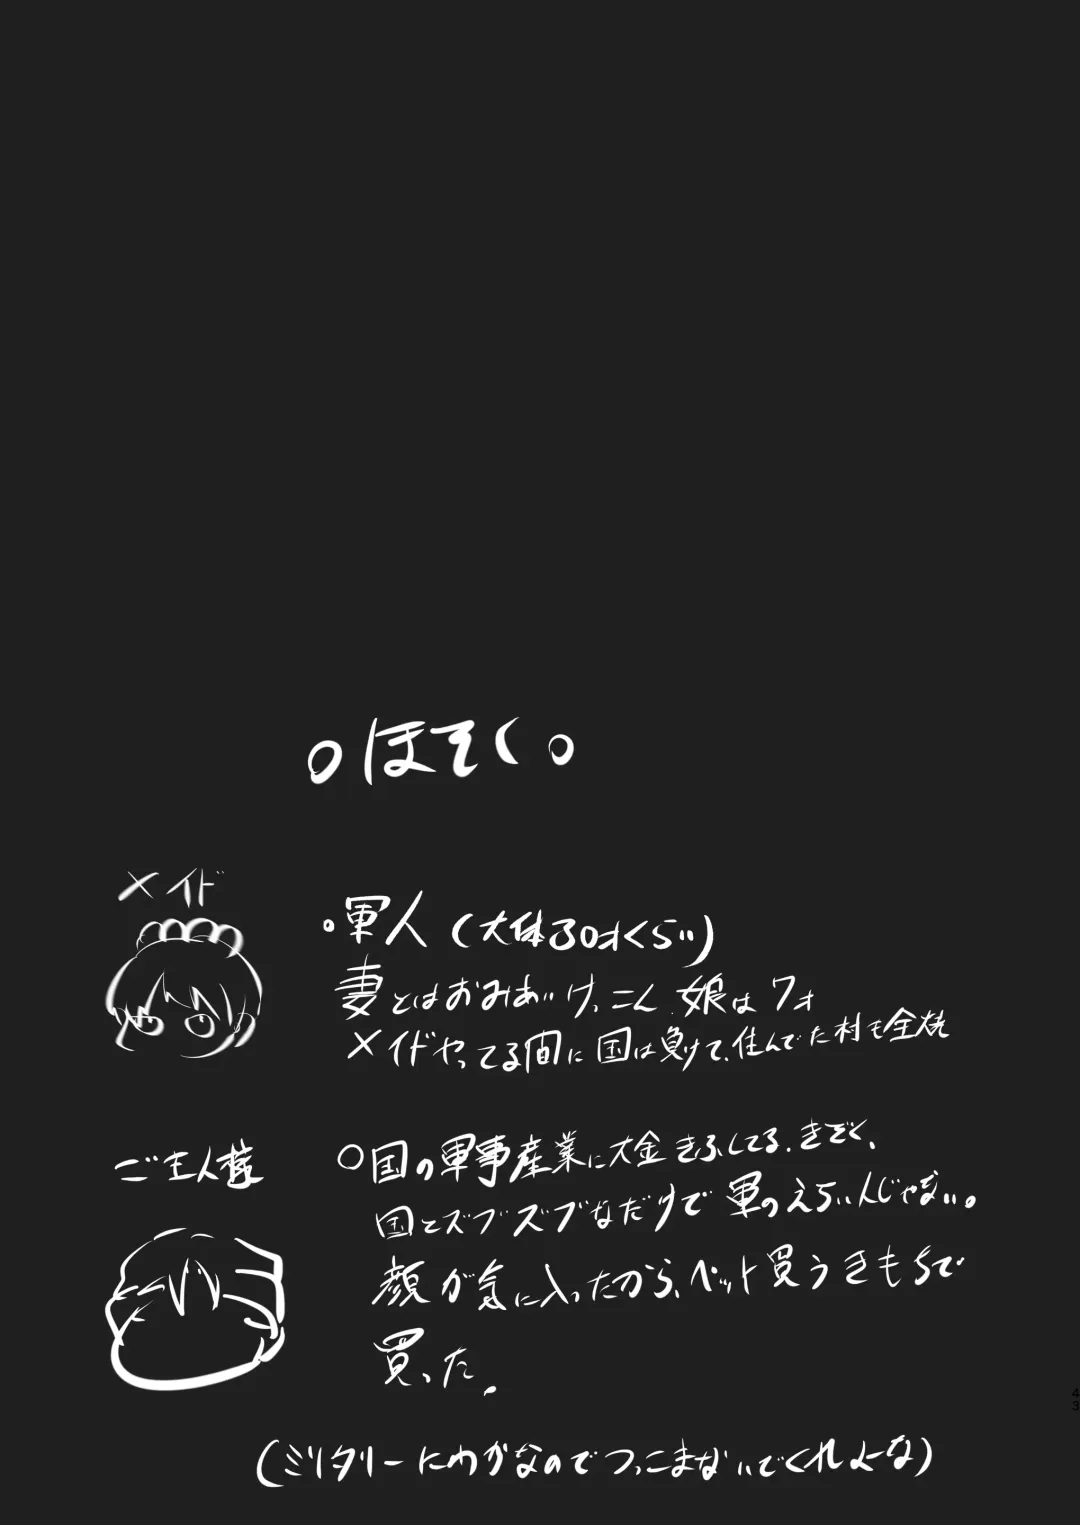 。ほそく。
メイド
。軍人(大体30才くらい)
妻とはおみあいけっこん.娘は7才
メイドやってる間に国は負けて、住んでた村も全焼
ご主人様
○国の軍事産業に大金きふしてる、きぞく、
国とズブズブなだけで軍のえらい人じゃない。
顔が気に入ったから、ペット買うきもちで
買った。
(ミリタリーにわかなのでつっこまないでくれよーな)
43